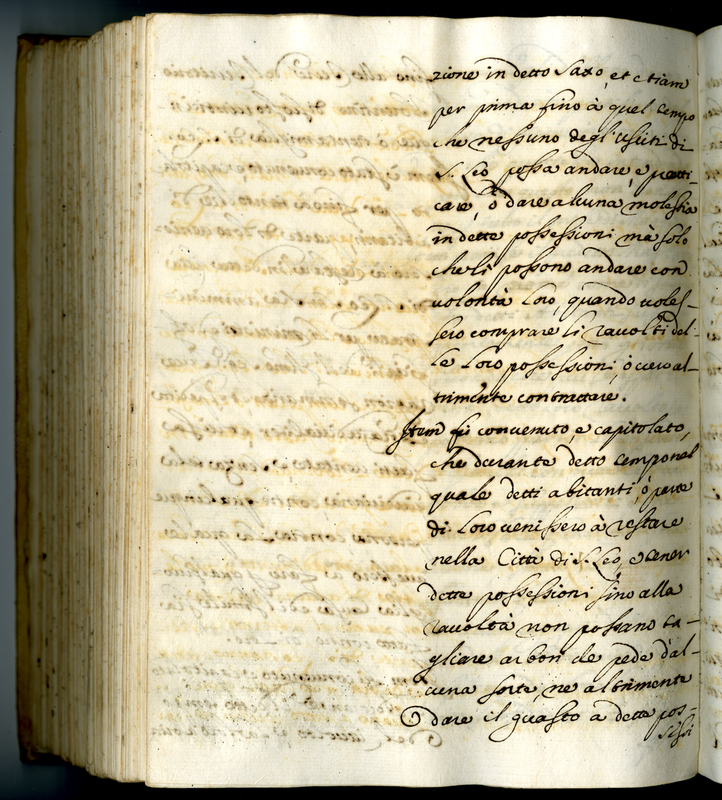 zione in detto Saxo, et etiam
per prima fino à quel tempo
che nessuno degl'Usciti di
S. Leo possa andare, e pratti-
care, ò dare alcuna molestia
in dette possessioni mà solo
che li possono andare con
volontà loro, quando voles-
sero comprare li racolti del-
le loro possessioni, ò vero al-
trimente contrattare.
Item fù convenuto, e capitolato,
che durante detto tempo nel
quale detti abitanti, ò parte
di loro venissero à restare
nella Città di S. Leo, e tener
dette possessioni sino alla
racoltà non possano ta-
gliare arbori de pede d'al-
cuna sorte, ne altrimente
dare il guasto a dette pos-
sessi